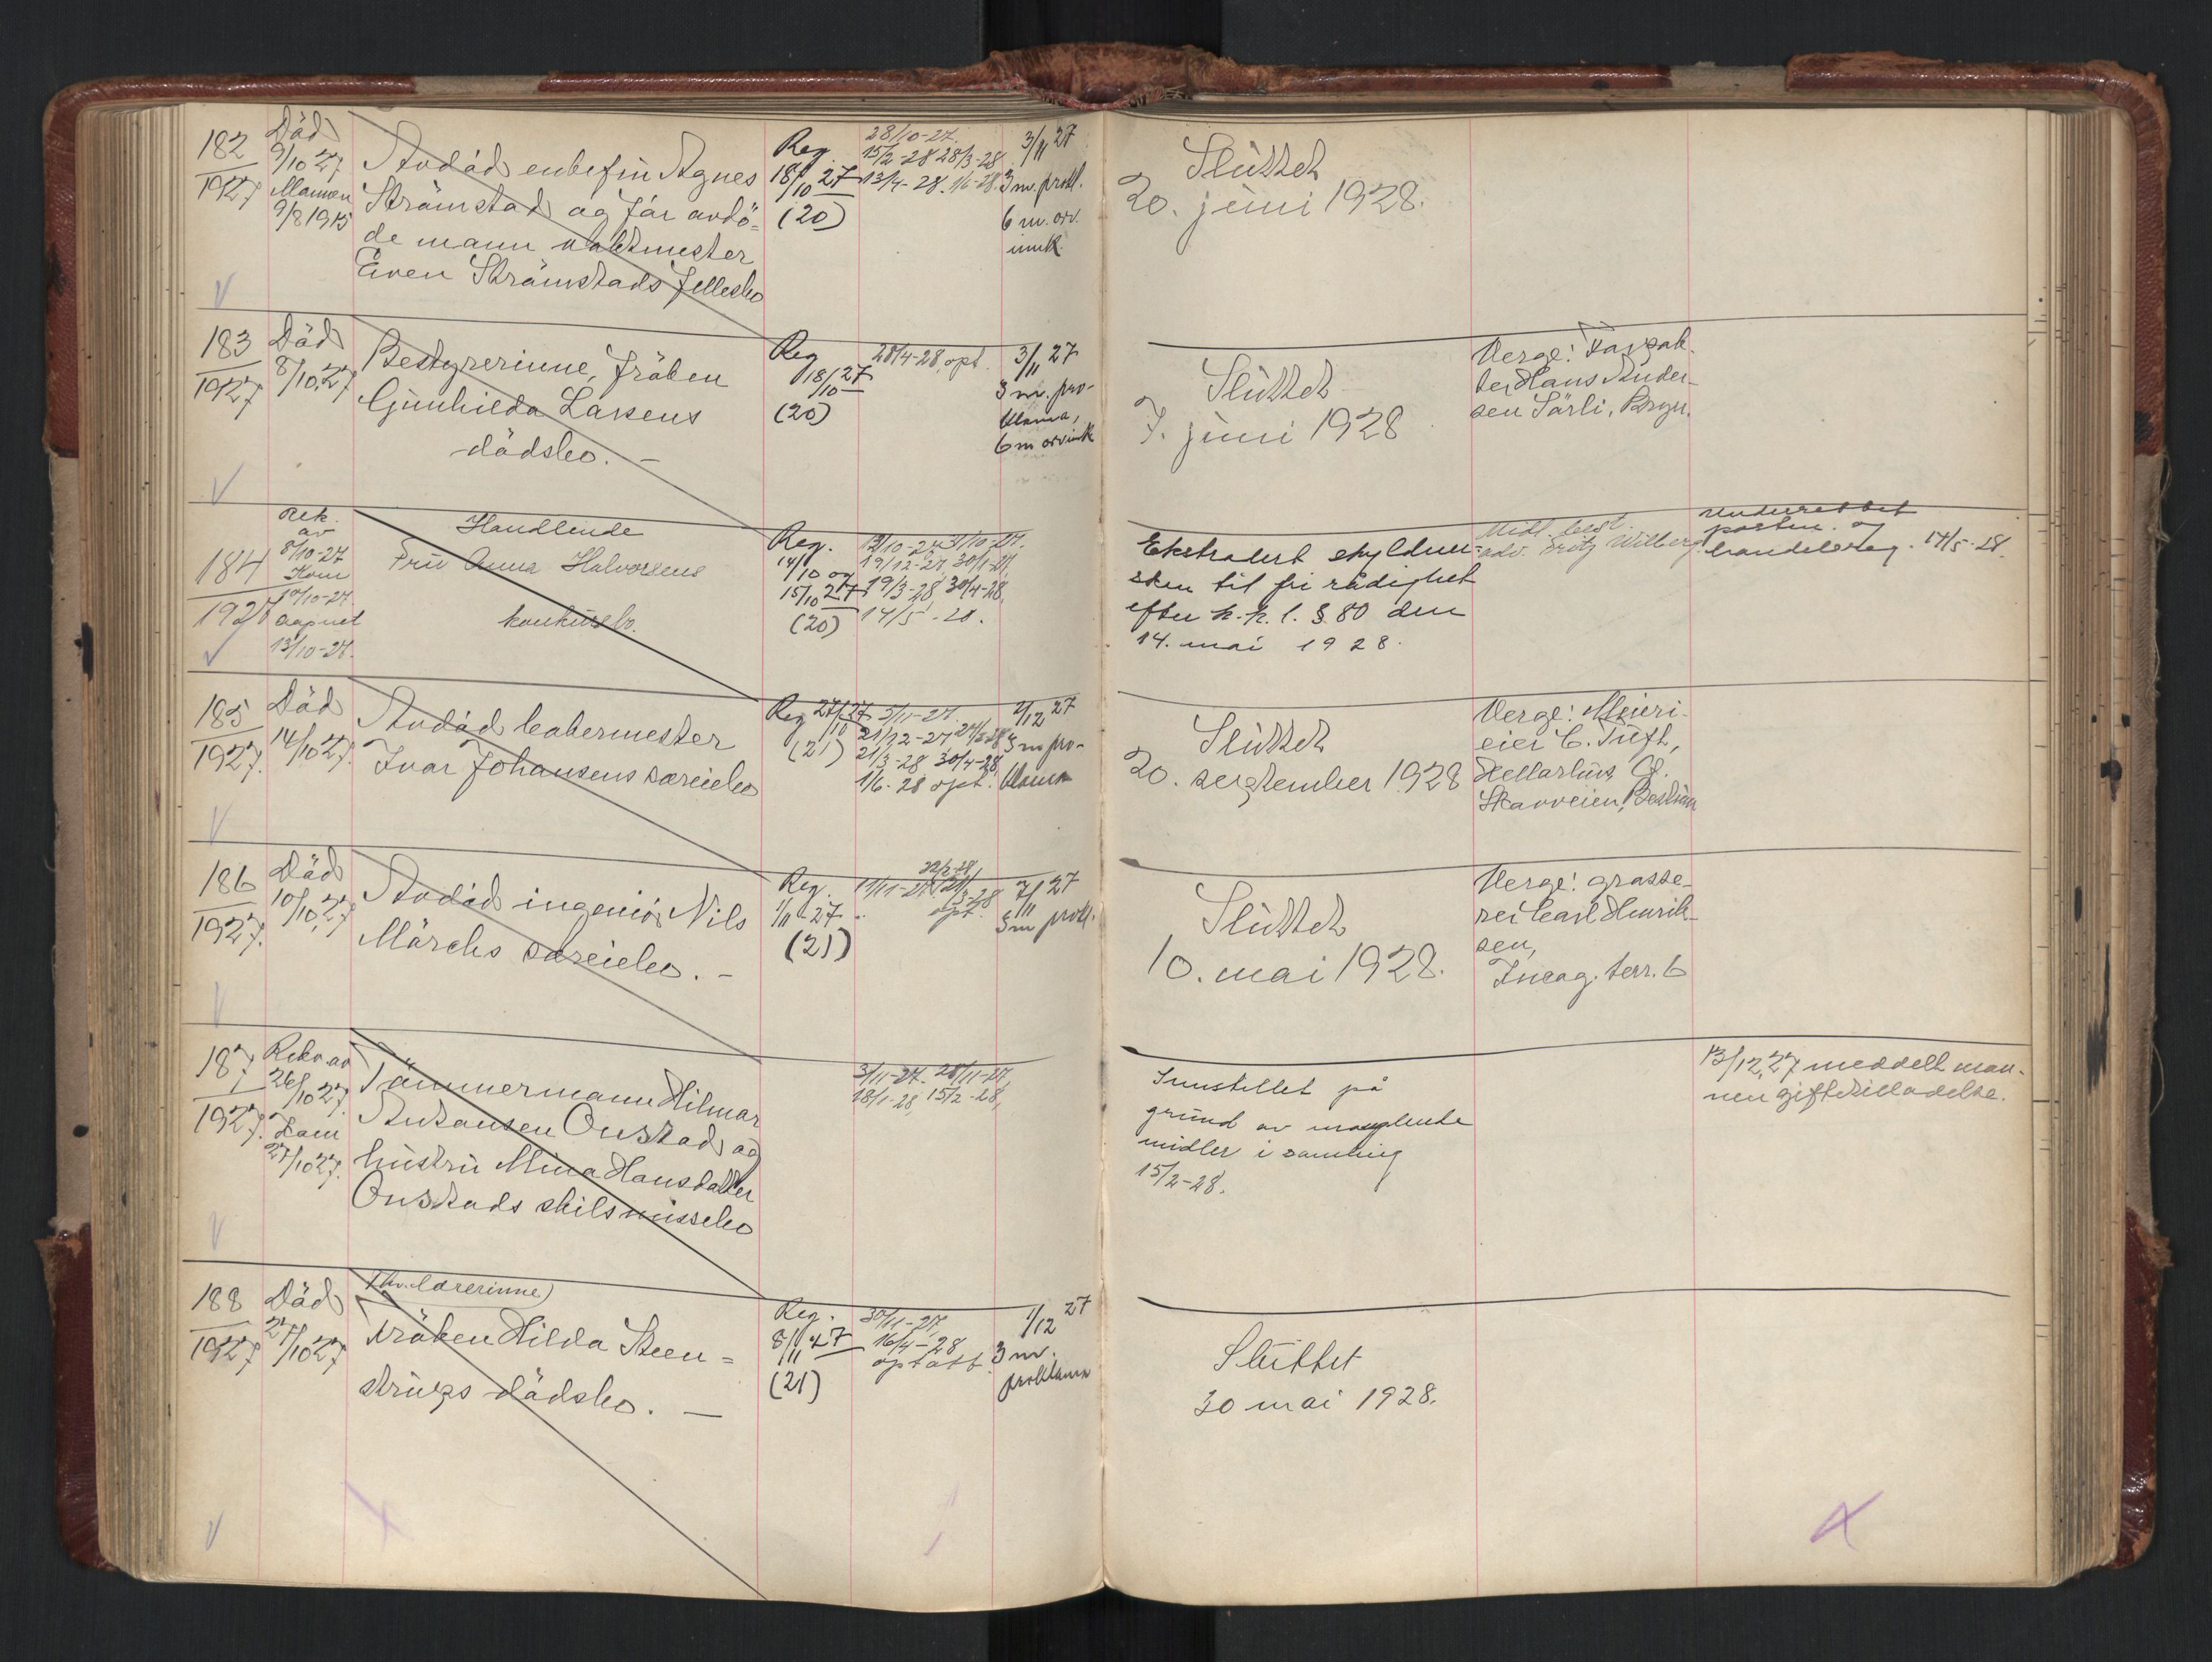 182
1927
Död
9/10 27
Mannen
9/8 1915
Avdöd enkefru Agnes
Strömstad og før avdö=
de mann vaktmester
Even Strömstads fellesbo
Reg.
18/10 27
(20)
28/10-27.
15/2-28 28/3-28
13/4-28. 1/6-28.
3/11 27
3 m. prokl.
6 m. arv.
innk.
Sluttet
20. juni 1928.
183
1927
Död
8/10 27
Bestyrerinne, fröken
Gunhilda Larsens
dödsbo. —
Reg
18/10 27
(20)
28/4-28 opt.
3/11 27
3 m. pro-
klama,
6 m arvink
Sluttet
7. juni 1928
Hans Ander-
sen Sörli,
184
1927
Rek.
av
8/10-27
Kom
10/10-27
aapnet
13/10-27.
Handlende
Fru Anna Halvorsens
konkursbo.
Reg.
14/10 og
15/10 27
(20)
19/12-27, 30/1-28,
19/3-28 30/4-28,
14/5-28.
Ekstradert skyldner-
sken til fri rådighet
efter k.k.l. § 80 den
14. mai 1928.
Midl. best.
adv. Fritz Willberg.
Underrettet
posten og
handelsreg. 14/5-28.
185
1927.
Död
14/10 27.
Avdöd
Ivar Johansens særeiebo
Reg 27/10 27
(21)
5/11-27.
21/12-27 24/2-28
21/3-28 30/4-28,
1/6-28 opt.
2/12 27
3 m pro-
klama
Sluttet
20. september 1928
Verge: Meieri-
eier C. Tuft,
Skarveien, Bestum
186
1927.
Död
10/10 27
Avdöd ingeniör Nils
Mörchs særeiebo. —
Reg.
1/11-27.
(21)
22/2-28
11/11-27 21/3-28
opt.
7/11 27
3 m prokl.
Sluttet
10. mai 1928.
Verge: grosse-
rer Carl Henrik-
sen,
terr. 6
187
1927.
Rekv. av
26/10 27.
Kom
27/10 27.
Tömmermann Hilmar
Antonsen Onstad og
hustru Mina Hansdatter
Onstads skilsmissebo
3/11-27. 28/11-27,
18/1-28, 15/2-28,
Innstillet på
grund av manglende
midler i samling
15/2-28.
13/12 27 meddelt man-
nen giftetilladelse.
188
1927
Död
27/10 27
(hv. lærerinne)
Fröken Hilda Steen=
strups dödsbo. —
Reg.
8/11 27
(21)
30/11-27,
16/4-28
opt att.
1/12 27
3 m.
proklama
Sluttet
30 mai 1928.